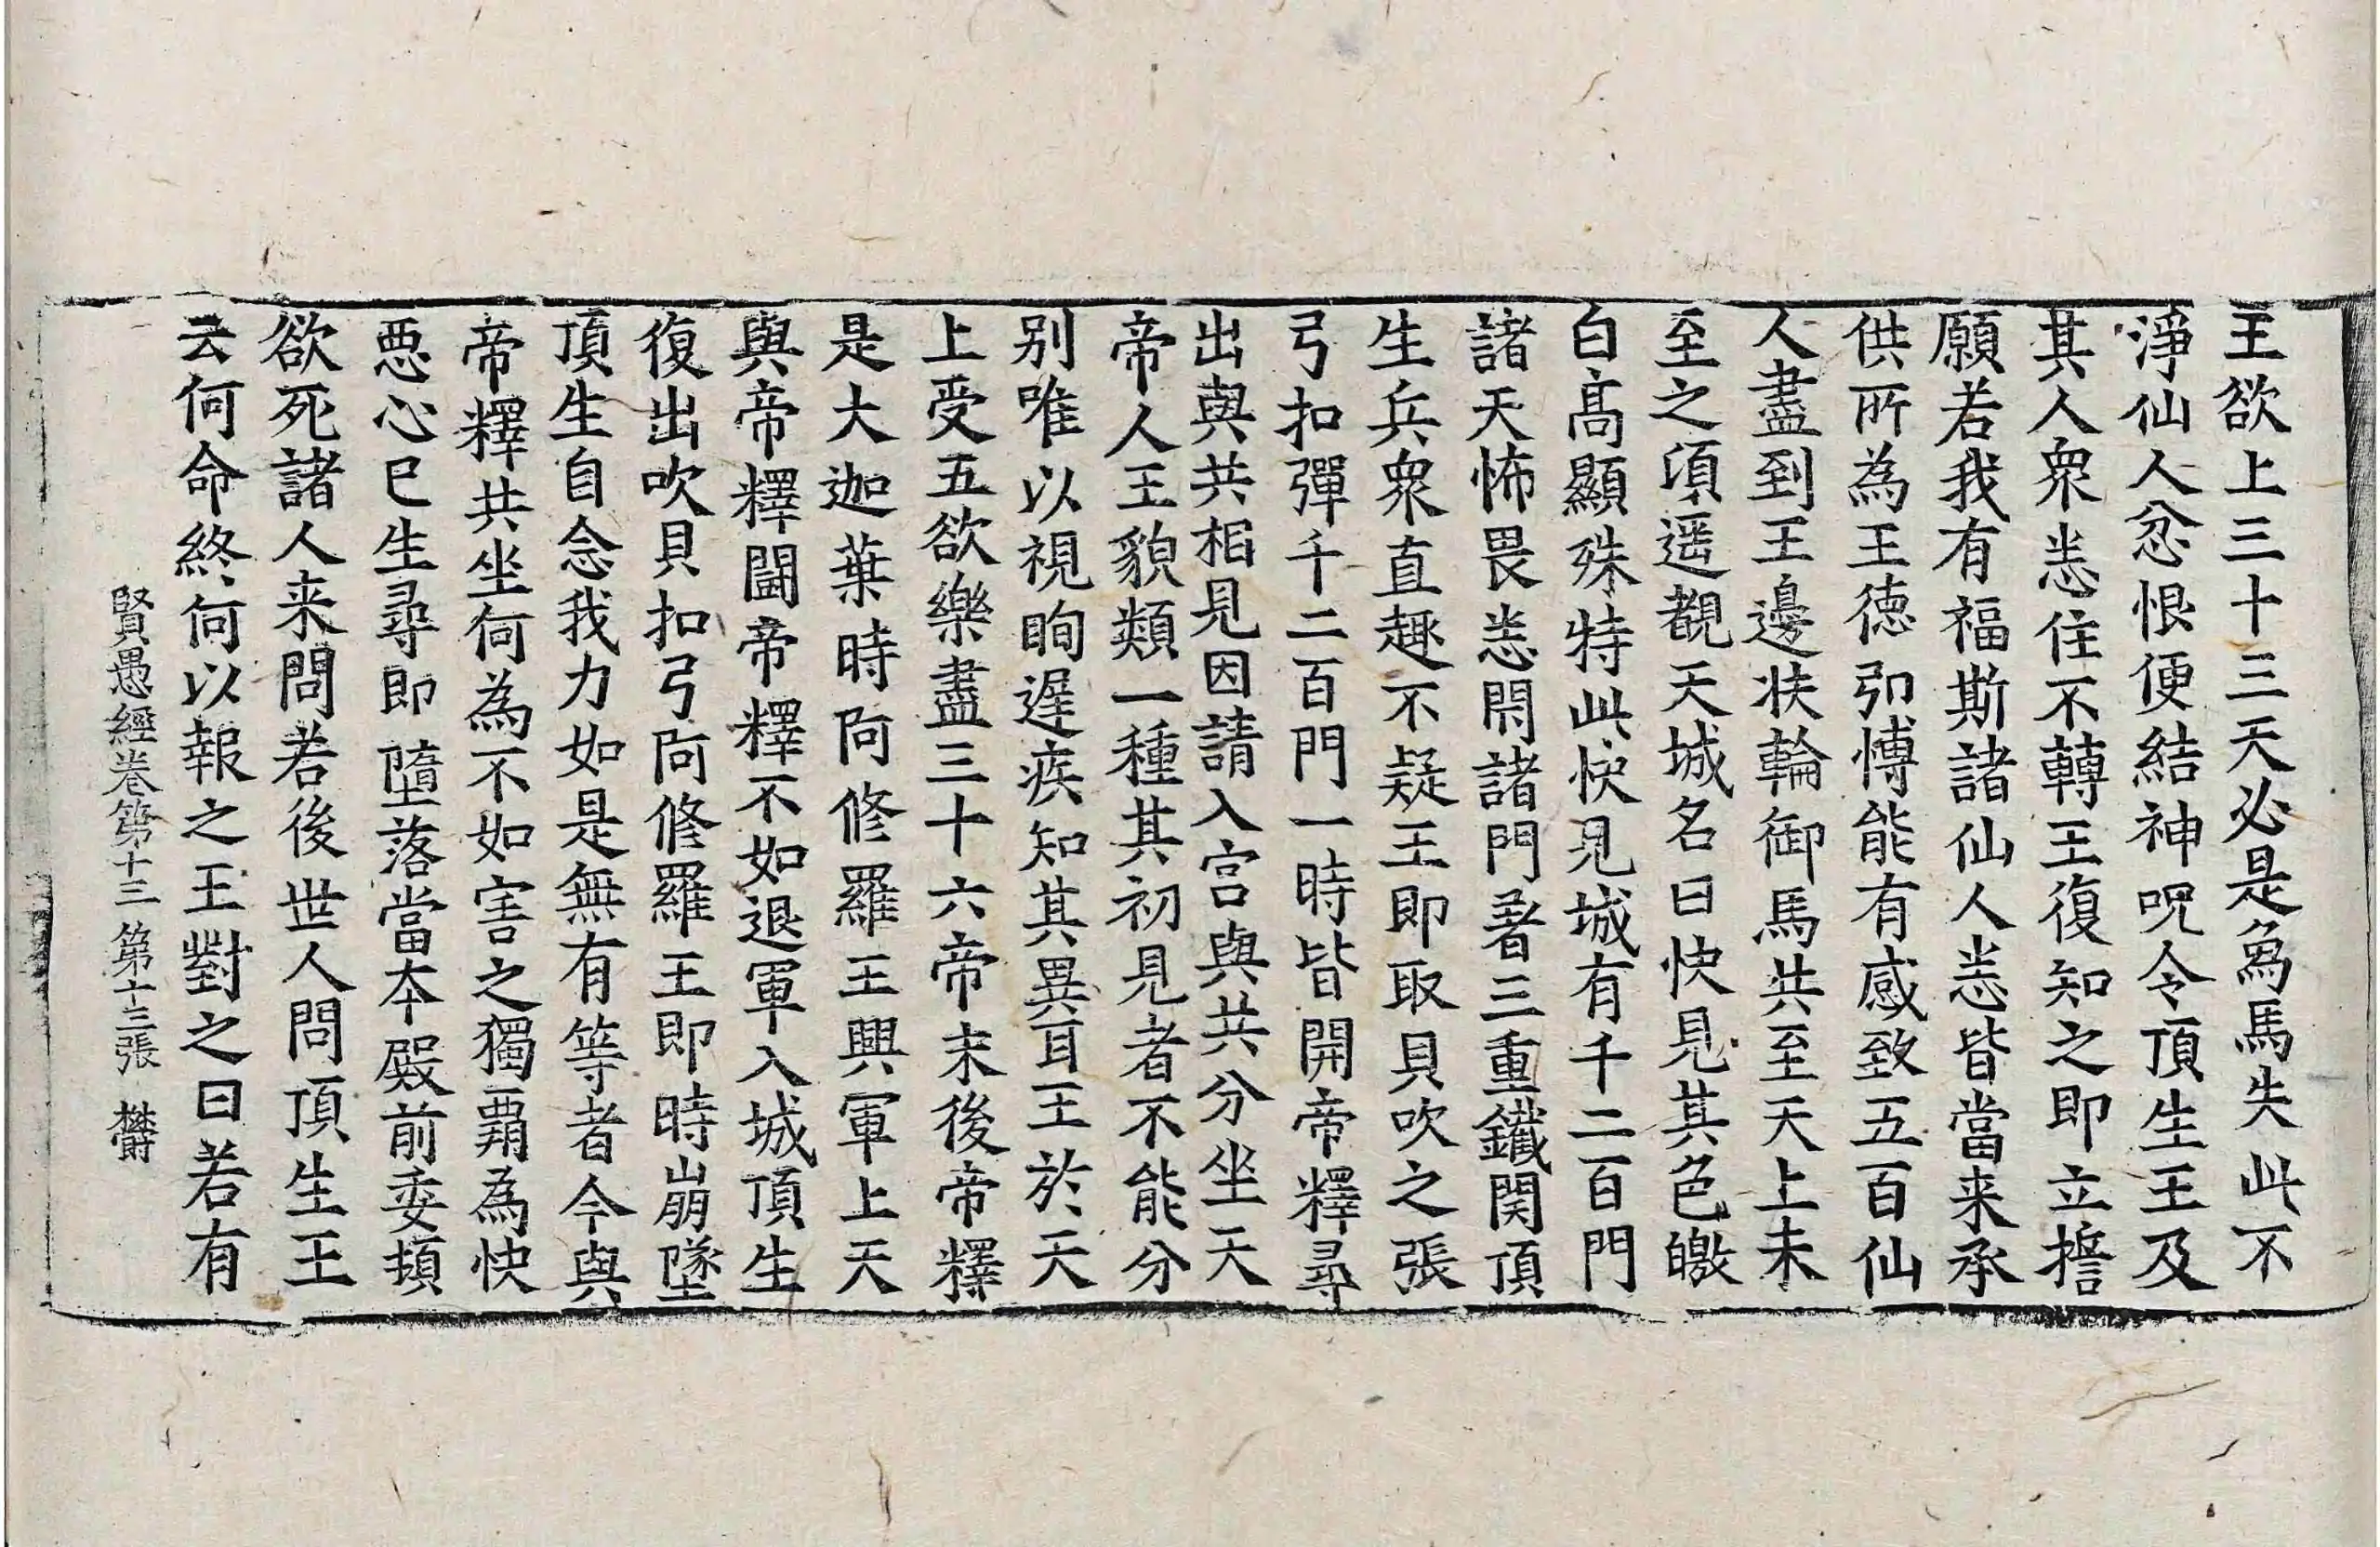 王欲上三十三天必是烏馬失此不
淨仙人忿恨便結神呪令頂生王及
其人衆恙住不轉王復知之即立擔
願若我有福斯諸仙人恙皆當来承
供所為王徳弘愽能有感致五百仙
人盡到王邊扶輪御馬共至天上未
至之須遥覩天城名曰快見其色皦
白髙顯殊特此快見城有千二百門
諸天怖畏恙閇諸門著三重鐵関頂
生兵衆直趣不疑王即取貝吹之張
弓扣彈千二百門一時皆開帝釋尋
出與共相見因請入宫與共分坐天
帝人王貌類一種其初見者不能分
别唯以視眴遅疾知其異耳王於天
上受五欲樂盡三十六帝末後帝釋
是大迦葉時阿修羅王興軍上天
與帝釋鬪帝釋不如退軍入城頂生
復出吹貝扣弓阿修羅王即時崩墜
頂生自念我力如是無有等者今與
帝釋共坐何為不如害之獨覇為快
悪心已生尋即墮落當本殿前委頓
欲死諸人来問若後世人問頂生王
云何命終何以報之王對之曰若有
賢愚經卷第十三 第十三張 欝